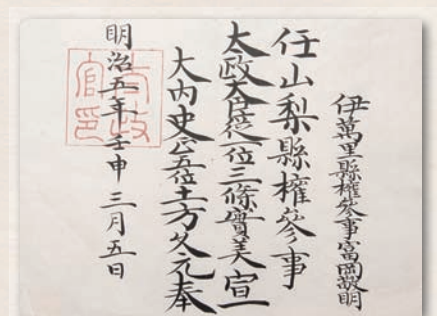 伊萬里縣權參事富岡敬明
任山梨縣權參事
太政大臣從一位三條實美宣
大內史正五位土方久元奉
明治五年壬申三月五日
太政官印